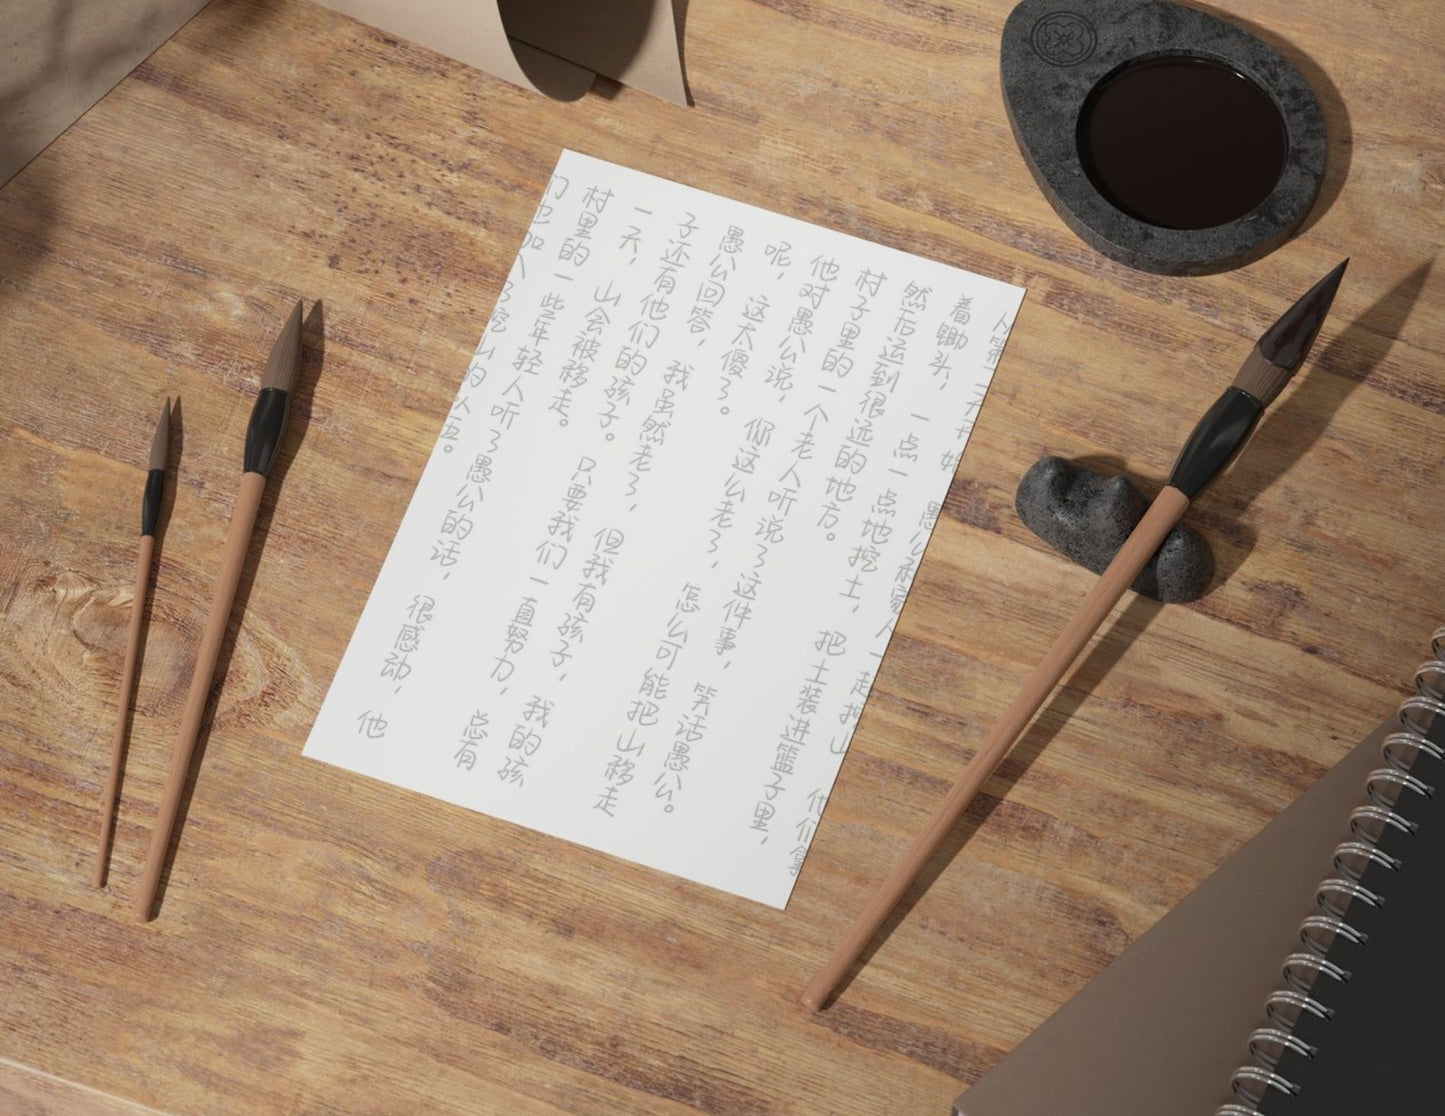 人第二天开始 愚公和家人一起挖山 他们拿
着锄头，一点一点地挖土，把土装进篮子里，
然后运到很远的地方。
村子里的一个老人听说了这件事，笑话愚公。
他对愚公说，你这么老了，怎么可能把山移走
呢，这太傻了。
愚公回答，我虽然老了，但我有孩子，我的孩
子还有他们的孩子。只要我们一直努力，总有
一天，山会被移走。
村里的一些年轻人听了愚公的话，很感动，他
们也加入了挖山的队伍。